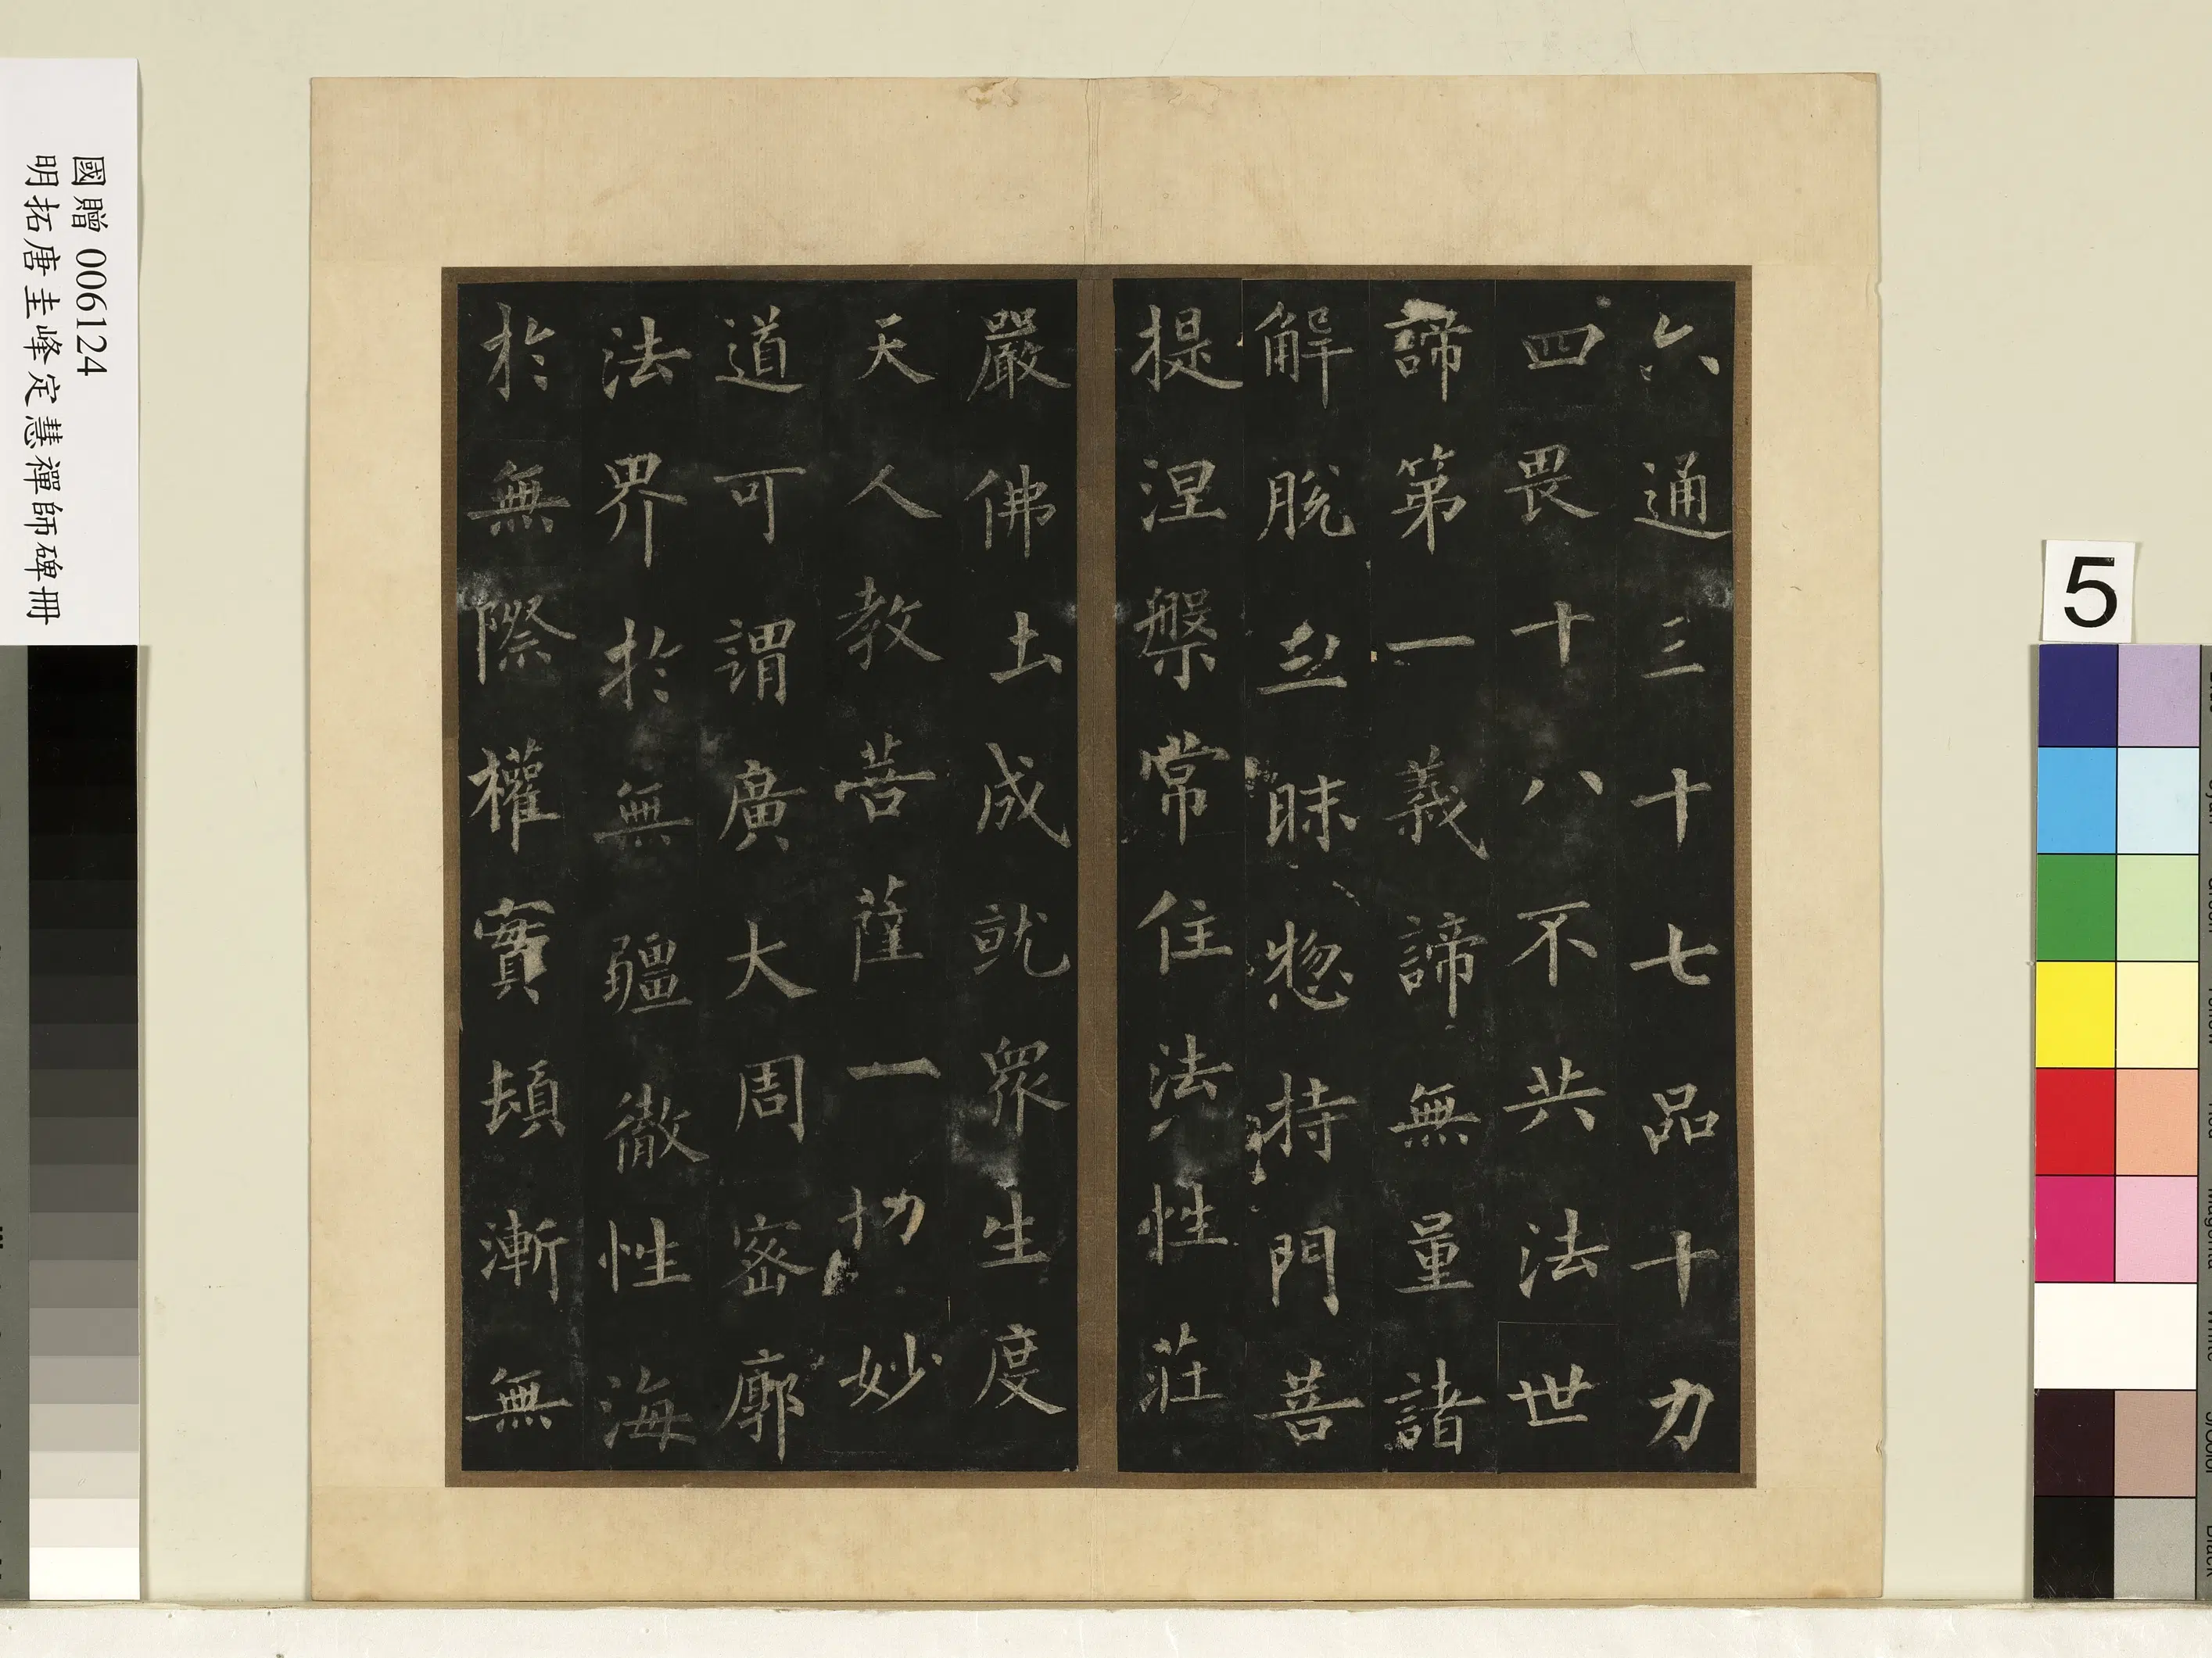 國贈 006124
明拓唐圭峰定慧禪師碑冊
六通三十七品十力
四畏十八不共法世
諦第一義諦無量諸
解脫三昧惣持門菩
提涅槃常住法性莊
嚴佛土成就眾生度
天人教菩薩一切妙
道可謂廣大周密廓
法界於無疆徹性海
於無際權實頓漸無
5